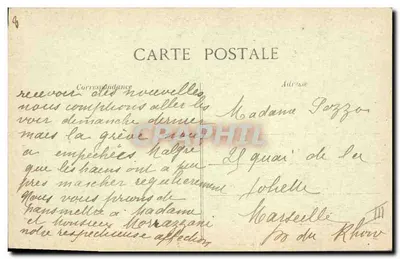 8
CARTE POSTALE
Correspondance
Adresse
recevoir des nouvelles
nous comptions aller les
voir dimanche dernier
mais la grève nous
a empechés. Malgré
que les trains ont a peu
pres marcher regulierement
Nous vous prions de
transmettre a Madame
et monsieur Morrazzani
notre respectueuse affection
Madame Pozzo
quai de
Joliette
Marseille III
du Rhone
CPAPHIL